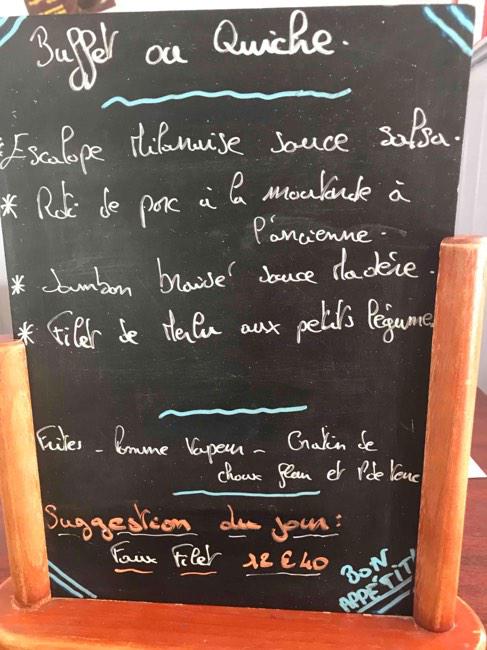 Buffet ou Quiche.
* Escalope Milanaise sauce salsa.
* Roti de porc à la moutarde à
l'ancienne.
* Jambon braisé sauce Madère.
* Filet de Merlu aux petits légumes
Frites - Pomme Vapeur - Gratin de
choux fleur et P de terre
Suggestion du jour:
Faux Filet 12€40
BON
APPÉTIT!